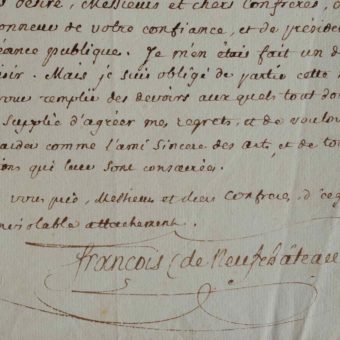 désiré, Messieurs et chers Confrères,
onneur de votre confiance, et de préside
éance publique. Je m'en étais fait un d
oir. Mais je suis obligé de partir cette
our remplir des devoirs aux quels tout do
supplie d'agréer mes regrets, et de vouloi
comme l'ami sincere des arts, et de to
ions qui leur sont consacrées.
vous prie, Messieurs et chers Confreres, d'
inviolable attachement.
François (de Neufchâteau